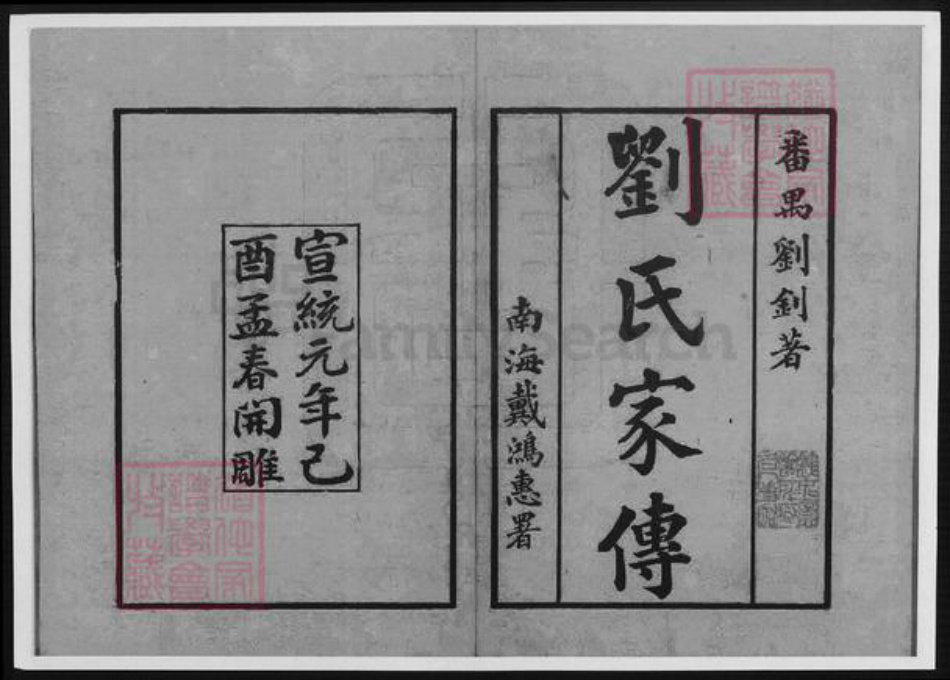 番禺劉釗著
劉氏家傳
南海戴鴻惠署
宣統元年己
酉孟春開雕
FamilySearch